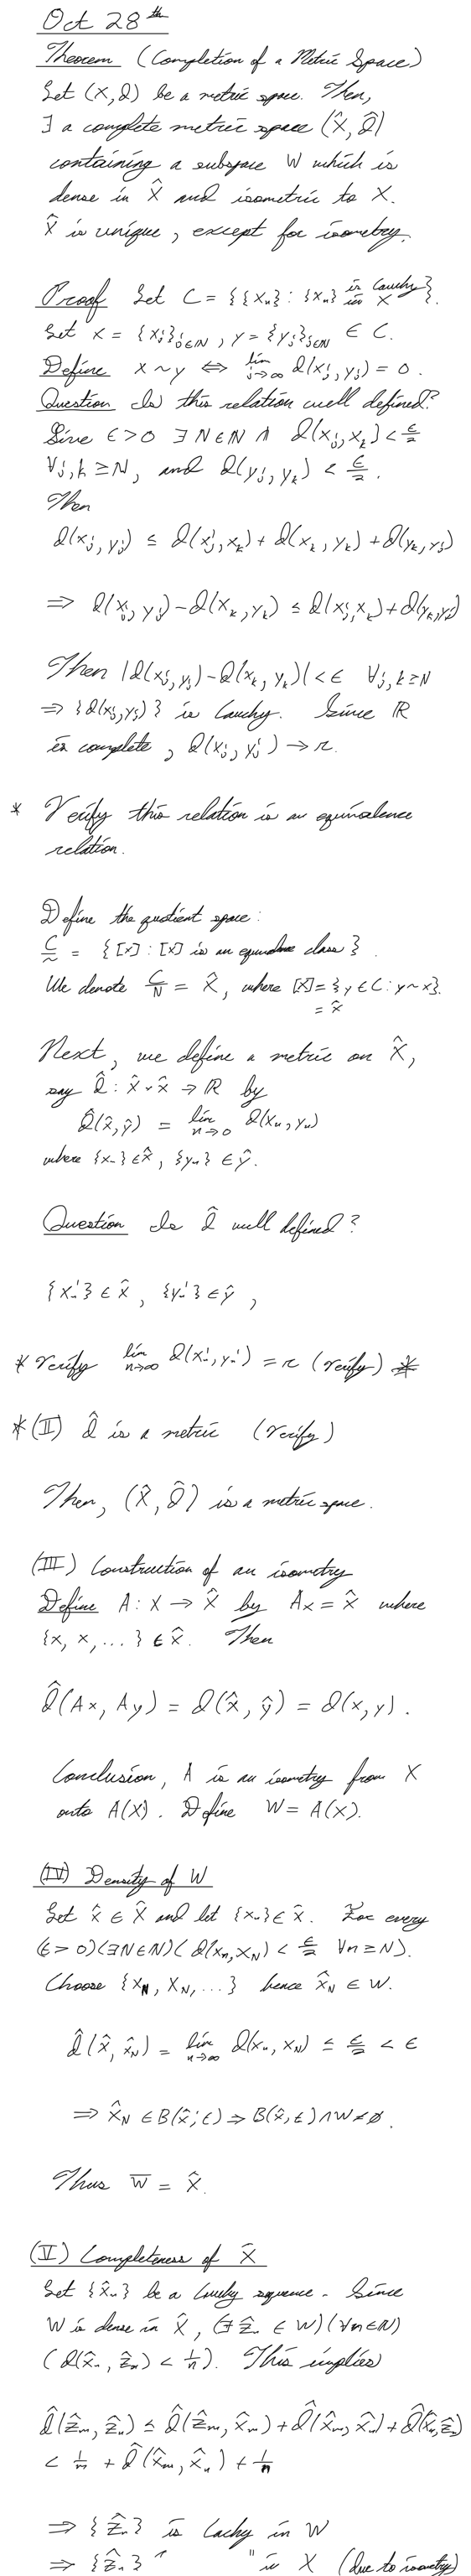 Oct 28th
Theorem (Completion of a Metric Space)
Let (X,d) be a metric space. Then,
∃ a complete metric space (X̂, d̂)
containing a subspace W which is
dense in X̂ and isometric to X.
X̂ is unique, except for isometry.
Proof Let C = {{xₙ} : {xₙ} is Cauchy in X}.
Let x = {xⱼ}ⱼ∈ℕ, y = {yⱼ}ⱼ∈ℕ ∈ C.
Define x ~ y ⇔ lim j→∞ d(xⱼ, yⱼ) = 0.
Question Is this relation well defined?
Give ε>0 ∃ N∈ℕ ∧ d(xⱼ, xₖ) < ε/2
∀j,k ≥ N, and d(yⱼ, yₖ) < ε/2.
Then
d(xⱼ, yⱼ) ≤ d(xⱼ, xₖ) + d(xₖ, yₖ) + d(yₖ, yⱼ)
⇒ d(xⱼ, yⱼ) - d(xₖ, yₖ) ≤ d(xⱼ, xₖ) + d(yₖ, yⱼ)
Then |d(xⱼ, yⱼ) - d(xₖ, yₖ)| < ε ∀j,k ≥ N
⇒ {d(xⱼ, yⱼ)} is Cauchy. Since ℝ
is complete, d(xⱼ, yⱼ) → r.
* Verify this relation is an equivalence
relation.
Define the quotient space:
C/~ = {[x] : [x] is an equivalence class}.
We denote C/~ = X̂, where [x] = {y ∈ C : y ~ x}.
= x̂
Next, we define a metric on X̂,
say d̂ : X̂ × X̂ → ℝ by
d̂(x̂, ŷ) = lim n→0 d(xₙ, yₙ)
where {xₙ} ∈ x̂, {yₙ} ∈ ŷ.
Question Is d̂ well defined?
{xₙ'} ∈ x̂, {yₙ'} ∈ ŷ,
* Verify lim n→∞ d(xₙ', yₙ') = r (verify) *
* (II) d̂ is a metric (verify)
Then, (X̂, d̂) is a metric space.
(III) Construction of an isometry
Define A : X → X̂ by Ax = x̂ where
{x, x, ...} ∈ x̂. Then
d̂(Ax, Ay) = d(x̂, ŷ) = d(x, y).
Conclusion, A is an isometry from X
onto A(X). Define W = A(X).
(IV) Density of W
Let x̂ ∈ X̂ and let {xₙ} ∈ x̂. For every
(ε > 0)(∃N∈ℕ)(d(xₙ, x_N) < ε/2 ∀n ≥ N).
Choose {x_N, x_N, ...} hence x̂_N ∈ W.
d̂(x̂, x̂_N) = lim n→∞ d(xₙ, x_N) ≤ ε/2 < ε
⇒ x̂_N ∈ B(x̂; ε) ⇒ B(x̂, ε) ∩ W ≠ ∅.
Thus W̄ = X̂.
(V) Completeness of X̂
Let {x̂ₙ} be a Cauchy sequence. Since
W is dense in X̂, (∃ ẑₙ ∈ W)(∀n∈ℕ)
(d(x̂ₙ, ẑₙ) < 1/n). This implies
d̂(ẑₘ, ẑₙ) ≤ d̂(ẑₘ, x̂ₘ) + d̂(x̂ₘ, x̂ₙ) + d̂(x̂ₙ, ẑₙ)
< 1/m + d̂(x̂ₘ, x̂ₙ) + 1/n
⇒ {ẑₙ} is Cachy in W
⇒ {ẑₙ} " " in X (due to isometry)